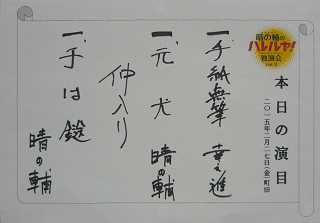 晴の輔の
ハレルヤ!
独演会
vol.2
本日の演目
二〇一五年二月二七日(金)町田
一、手紙無筆 幸之進
一、元犬 晴の輔
仲入り
一、子は鎹
晴の輔